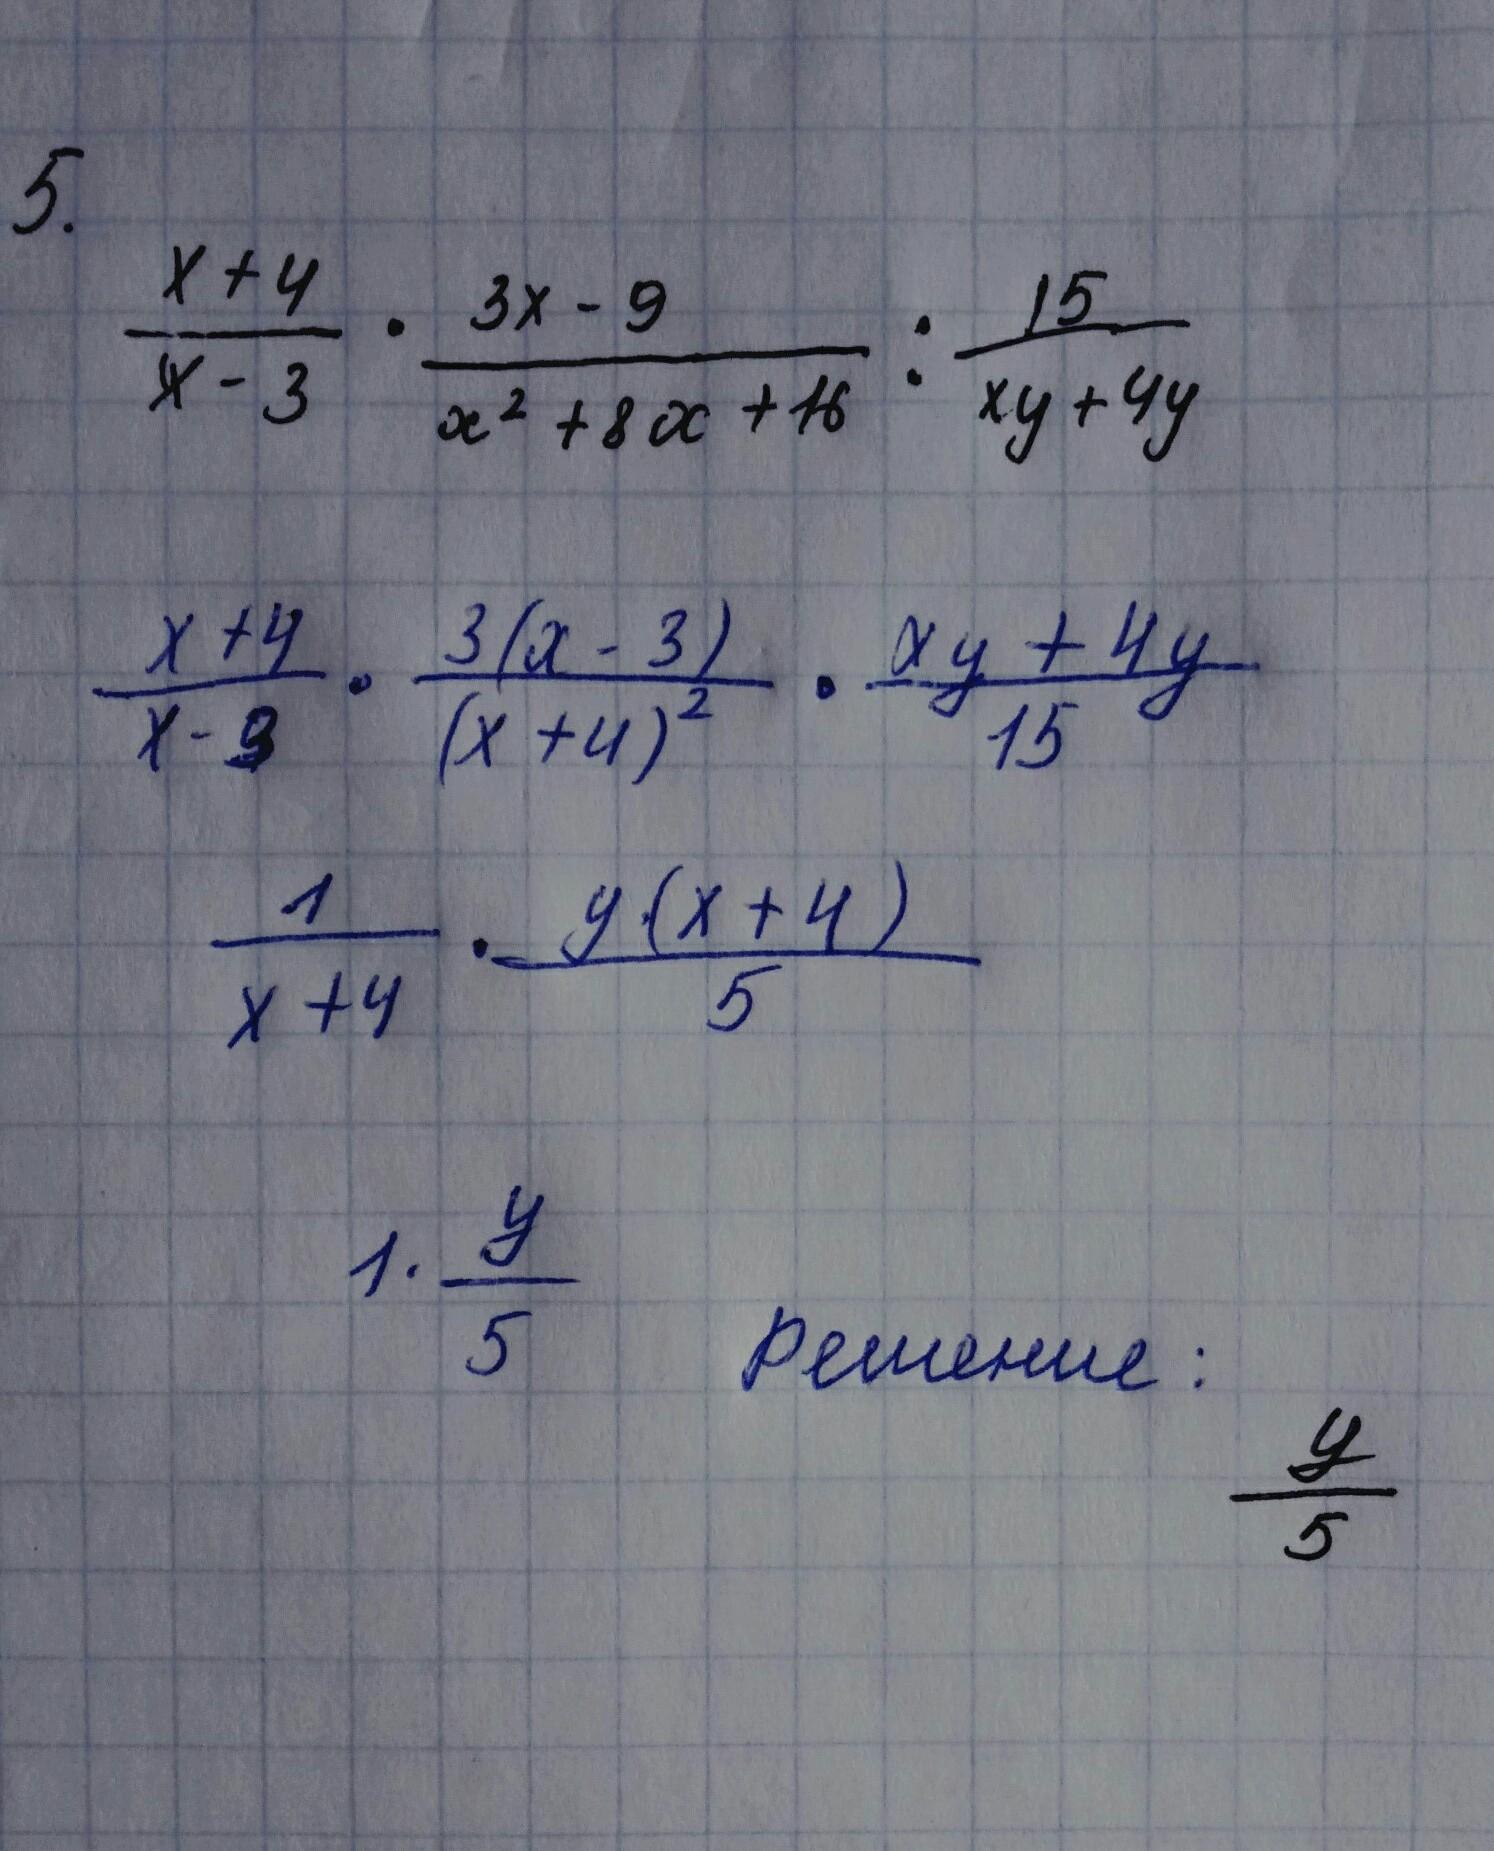 5.
(x+4)/(x-3) · (3x-9)/(x²+8x+16) : 15/(xy+4y)
(x+4)/(x-3) · 3(x-3)/(x+4)² · (xy+4y)/15
1/(x+4) · y·(x+4)/5
1 · y/5
Решение:
y/5